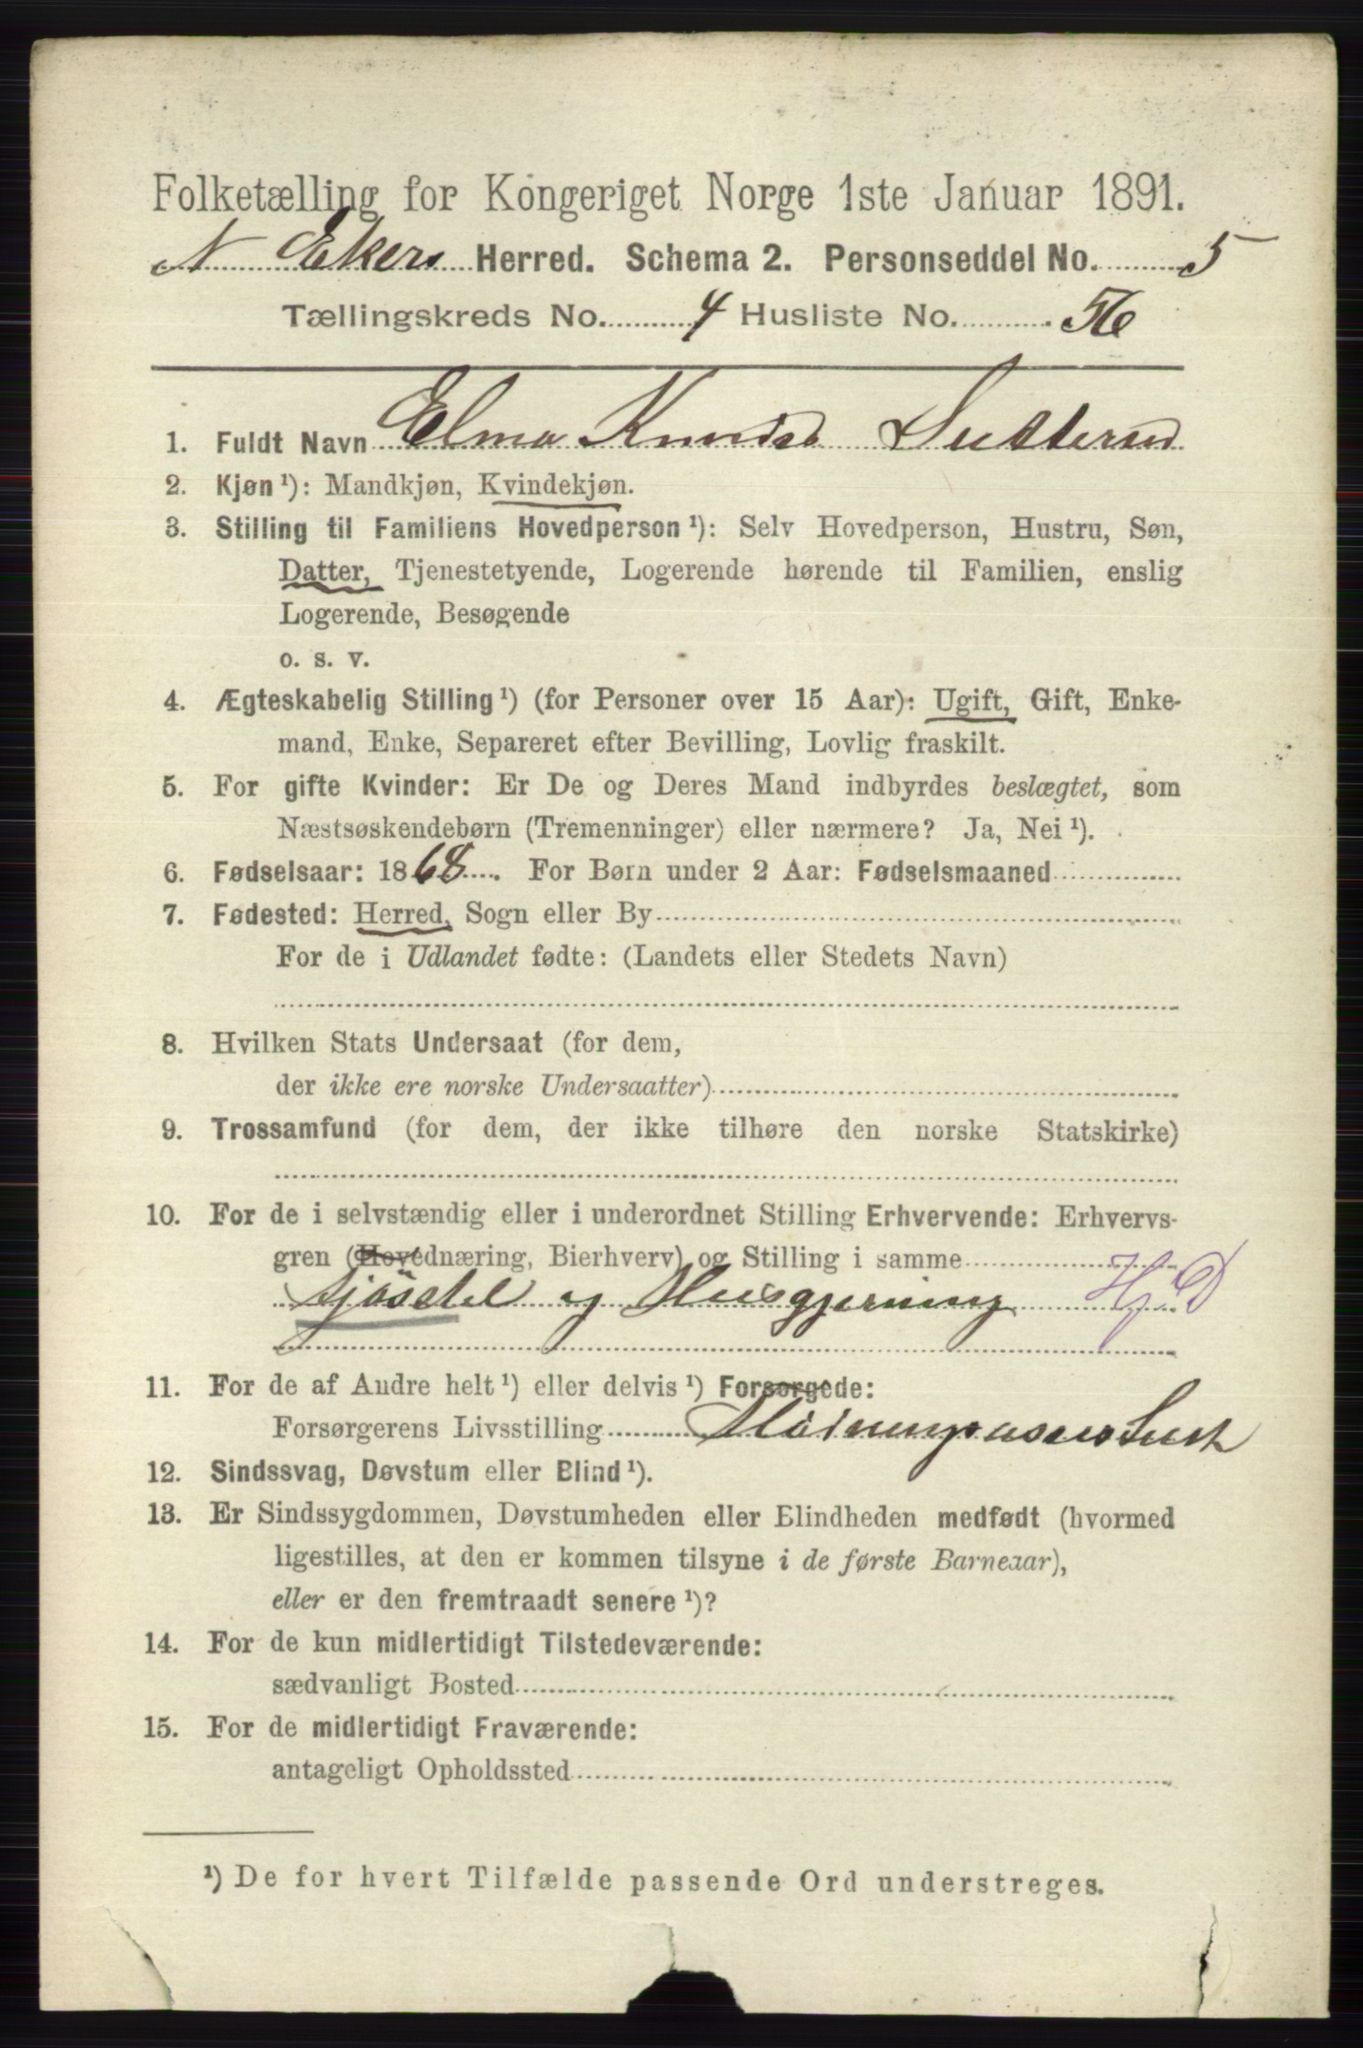 Folketælling for Kongeriget Norge 1ste Januar 1891.
N Ekers Herred. Schema 2. Personseddel No. 5
Tællingskreds No. 4 Husliste No. 56
1. Fuldt Navn Elma Knudsd
2. Kjøn ¹): Mandkjøn, Kvindekjøn.
3. Stilling til Familiens Hovedperson ¹): Selv Hovedperson, Hustru, Søn,
Datter, Tjenestetyende, Logerende hørende til Familien, enslig
Logerende, Besøgende
o. s. v.
4. Ægteskabelig Stilling ¹) (for Personer over 15 Aar): Ugift, Gift, Enke-
mand, Enke, Separeret efter Bevilling, Lovlig fraskilt.
5. For gifte Kvinder: Er De og Deres Mand indbyrdes beslægtet, som
Næstsøskendebørn (Tremenninger) eller nærmere? Ja, Nei ¹).
6. Fødselsaar: 1868. For Børn under 2 Aar: Fødselsmaaned
7. Fødested: Herred, Sogn eller By
For de i Udlandet fødte: (Landets eller Stedets Navn)
8. Hvilken Stats Undersaat (for dem,
der ikke ere norske Undersaatter)
9. Trossamfund (for dem, der ikke tilhøre den norske Statskirke)
10. For de i selvstændig eller i underordnet Stilling Erhvervende: Erhvervs-
gren (Hovednæring, Bierhverv) og Stilling i samme
fjösstel og Husgjerning Hj D
11. For de af Andre helt ¹) eller delvis ¹) Forsørgede:
Forsørgerens Livsstilling
12. Sindssvag, Døvstum eller Blind ¹).
13. Er Sindssygdommen, Døvstumheden eller Blindheden medfødt (hvormed
ligestilles, at den er kommen tilsyne i de første Barneaar),
eller er den fremtraadt senere ¹)?
14. For de kun midlertidigt Tilstedeværende:
sædvanligt Bosted
15. For de midlertidigt Fraværende:
antageligt Opholdssted
¹) De for hvert Tilfælde passende Ord understreges.